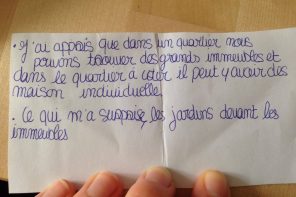 • J'ai appris que dans un quartier nous
pouvons trouver des grands immeubles et
dans le quartier à côté il peut y avoir des
maison individuelle.
• Ce qui m'a surpris, les jardins devant les
immeubles